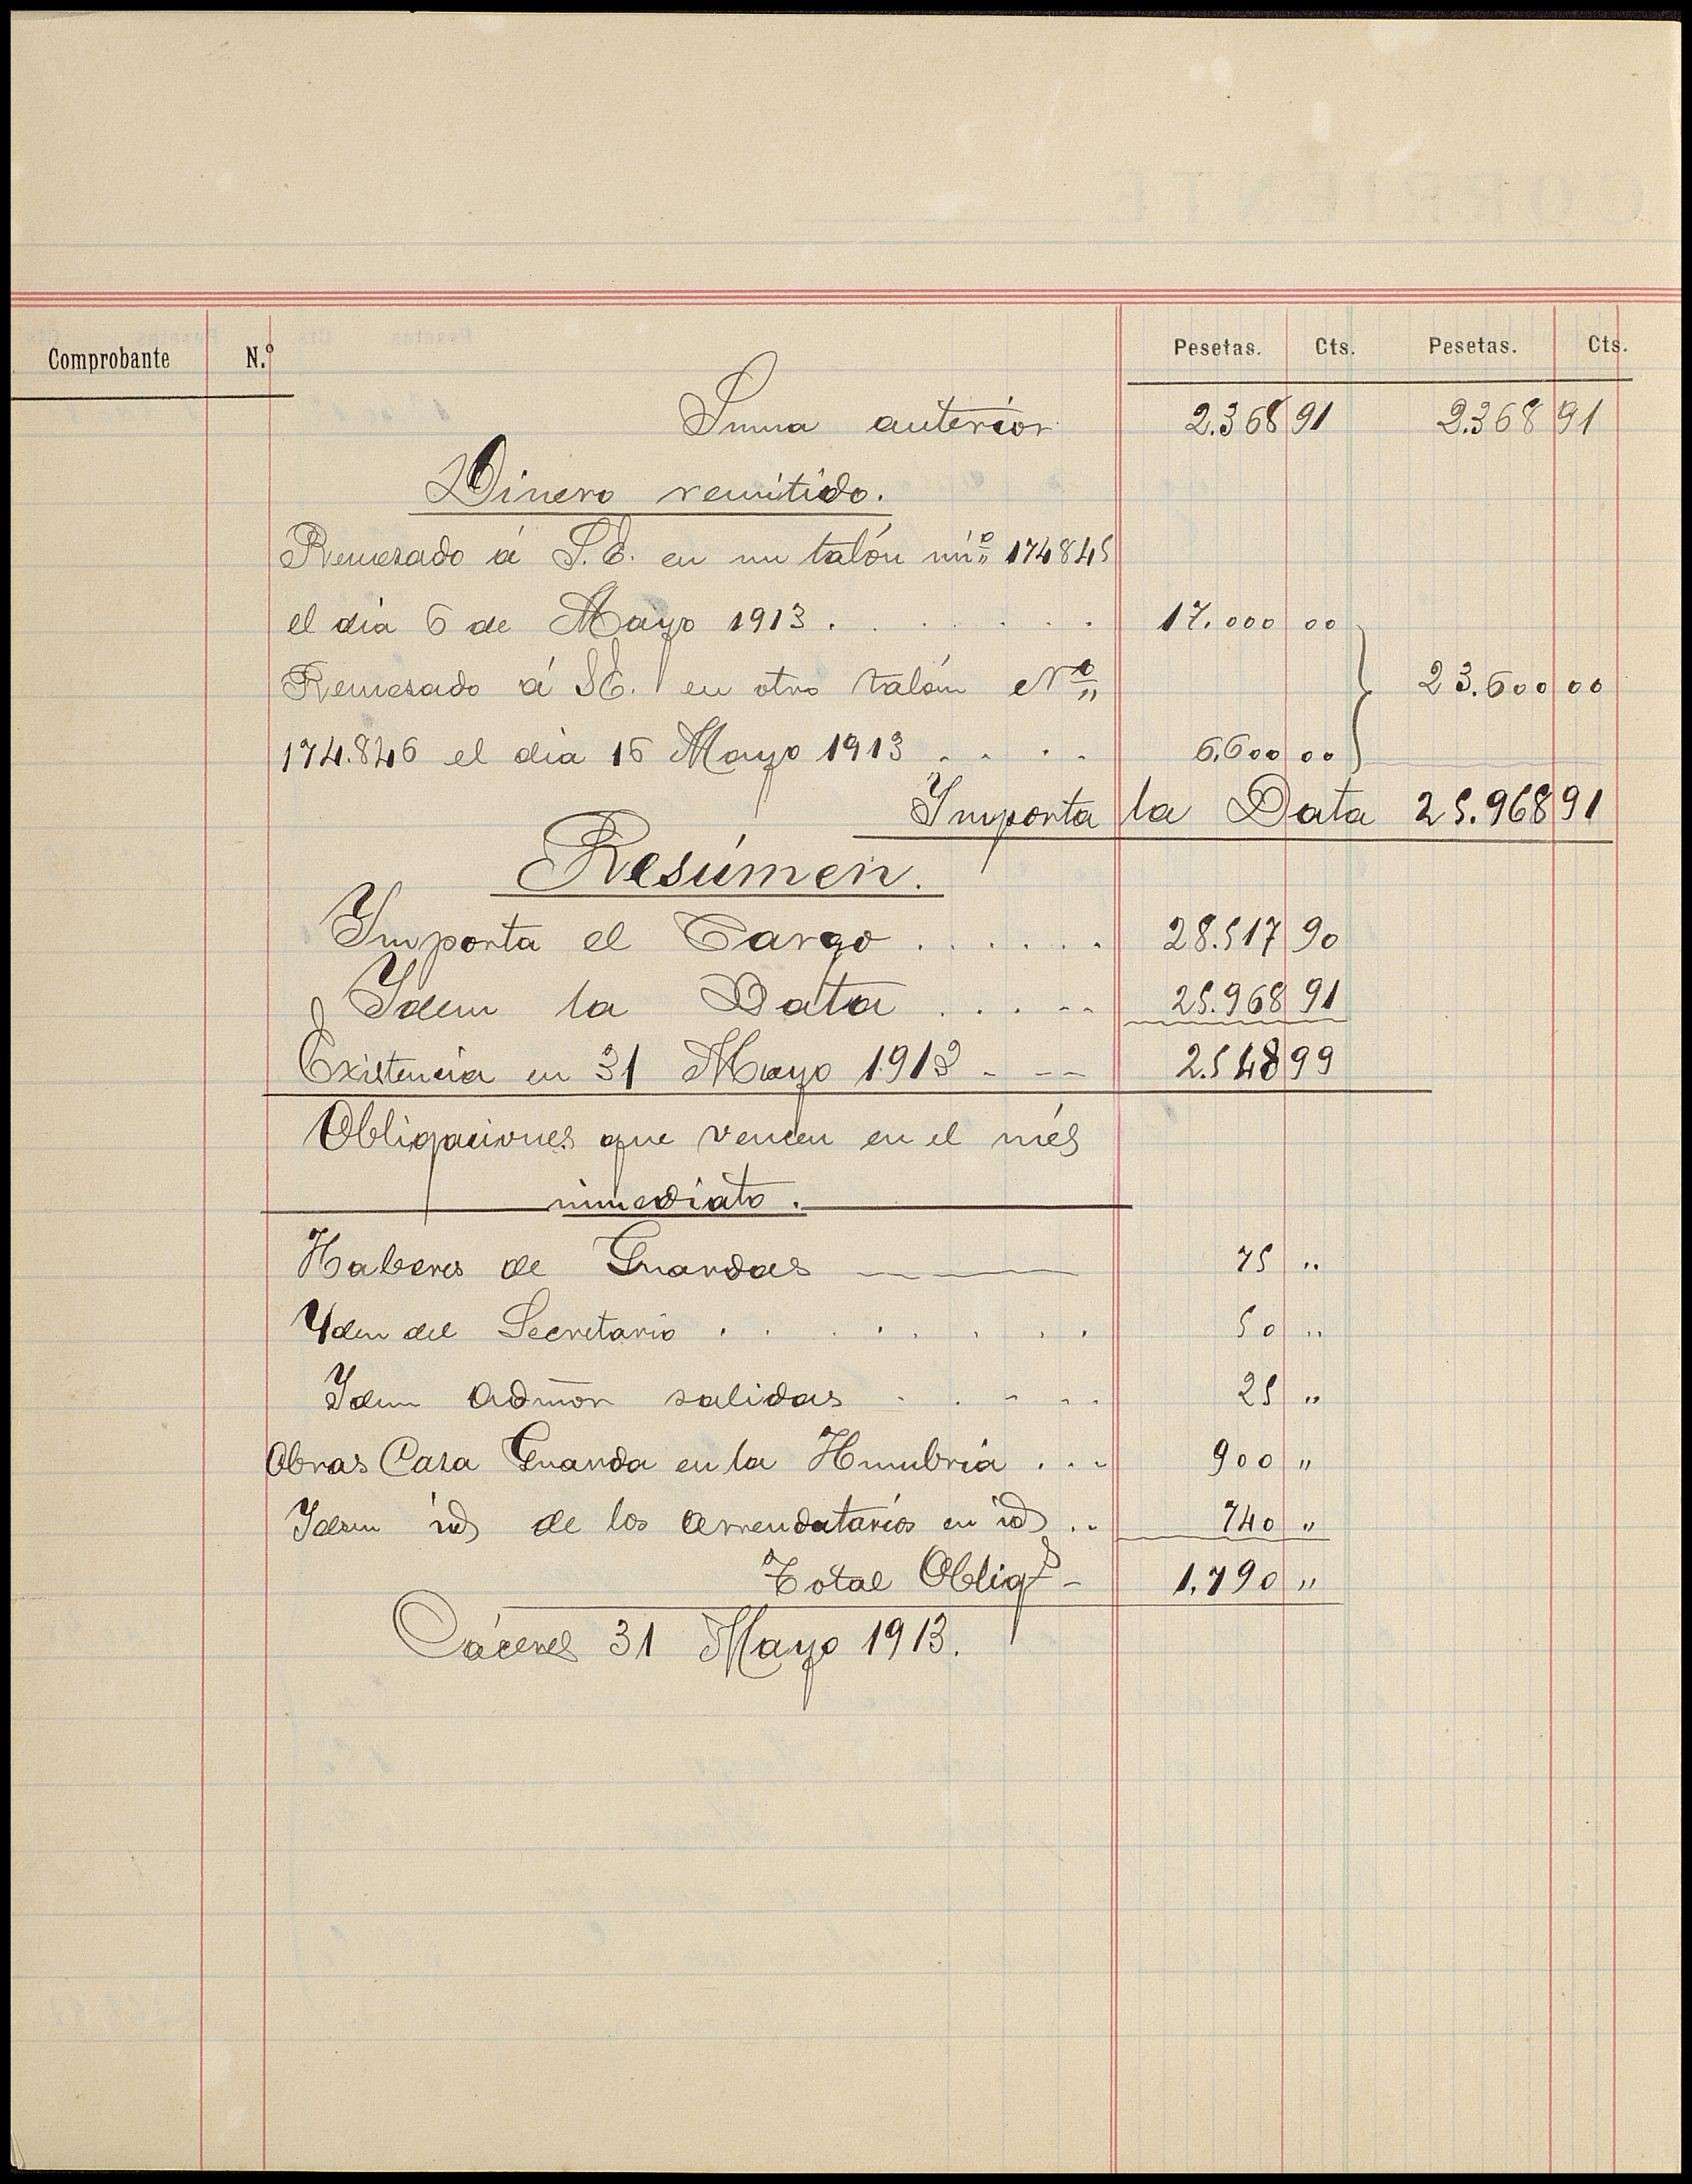 Comprobante N.º Pesetas. Cts. Pesetas. Cts.
Suma anterior 2.368 91 2.368 91
Dinero remitido.
Remesado á S.E. en un talón nº 174845
el dia 6 de Mayo 1913 . . . . . . . 17.000 00
Remesado á S.E. en otro talón Nº 23.600 00
174.846 el dia 16 Mayo 1913 . . . . 6.600 00
Importa la Data 25.968 91
Resúmen.
Importa el Cargo . . . . . . 28.517 90
Ydem la Data . . . - - 25.968 91
Existencia en 31 Mayo 1913 - -- 2.548 99
Obligaciones que vencen en el més
inmediato.
Haberes de Guardas 75 "
Yden del Secretario . . . . . . . . 50 "
Ydem Admon salidas . . - - . 25 "
Obras Casa Guarda en la Humbria . . - 900 "
Idem id de los arrendatarios en id . . 740 "
Total Obligs - 1.790 "
Cáceres 31 Mayo 1913.